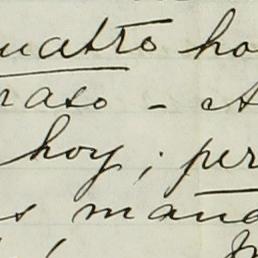 uatro ho
raso - A
hoy; per
s mana